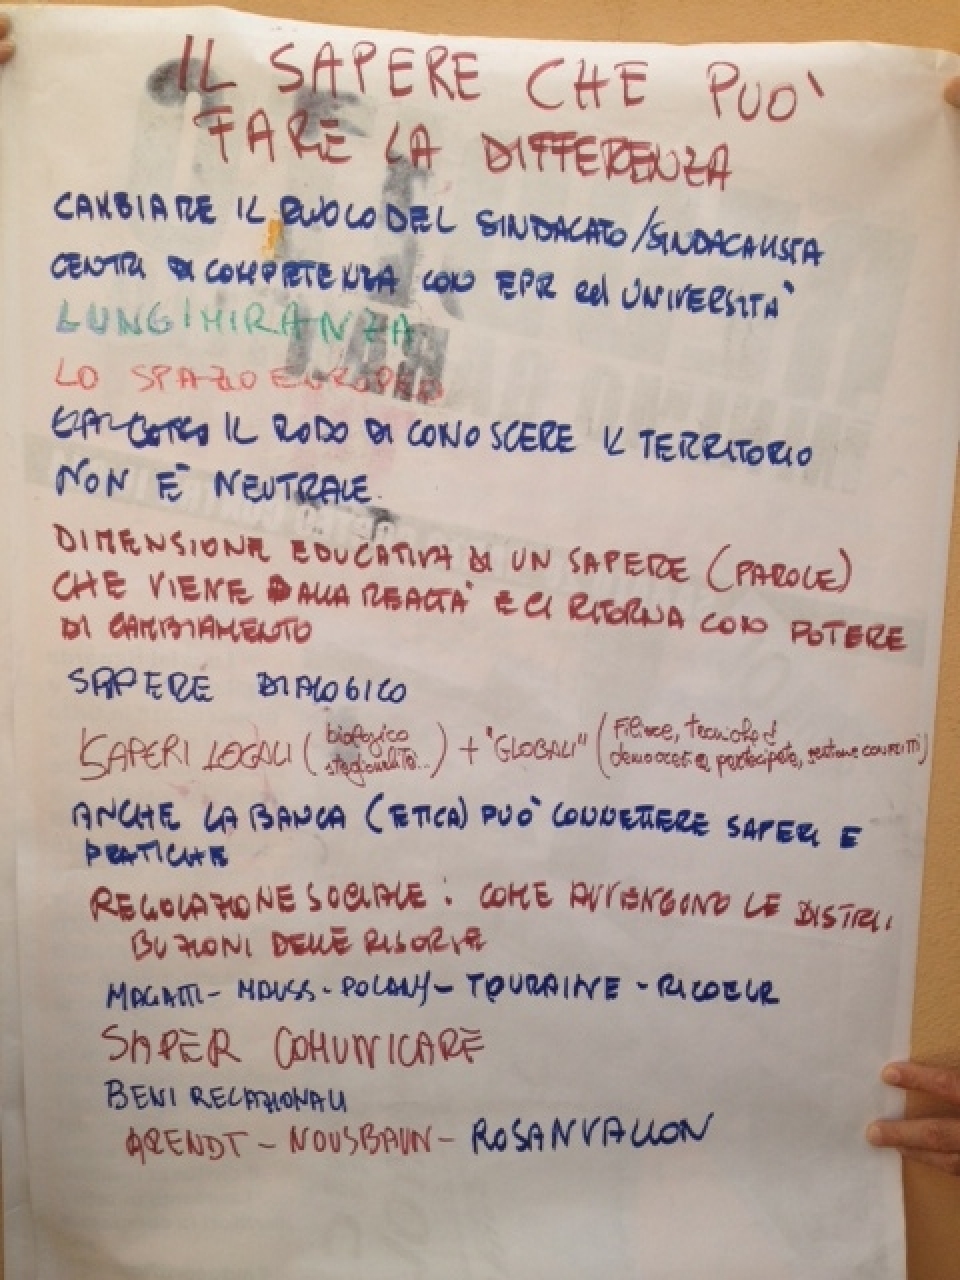 IL SAPERE CHE PUO'
FARE LA DIFFERENZA
CAMBIARE IL RUOLO DEL SINDACATO/SINDACALISTA
CENTRI DI COMPETENZA CON EPR ed UNIVERSITA'
LUNGIMIRANZA
LO SPAZIO EUROPEO
IL MODO DI CONOSCERE IL TERRITORIO
NON E' NEUTRALE.
DIMENSIONE EDUCATIVA DI UN SAPERE (PAROLE)
CHE VIENE DALLA REALTA' E CI RITORNA CON POTERE
DI CAMBIAMENTO
SAPERE DIALOGICO
SAPERI LOCALI (biologico stagionalità...) + "GLOBALI" (Filiere, tecniche d democrazia partecipata, gestione CONFLITTI)
ANCHE LA BANCA (ETICA) PUO' CONNETTERE SAPERI E
PRATICHE
REGOLAZIONE SOCIALE: COME AVVENGONO LE DISTRI
BUZIONI DELLE RISORSE
MAGATTI - MAUSS - POLANY - TOURAINE - RICOEUR
SAPER COMUNICARE
BENI RELAZIONALI
ARENDT - NOUSBAUN - ROSANVALLON